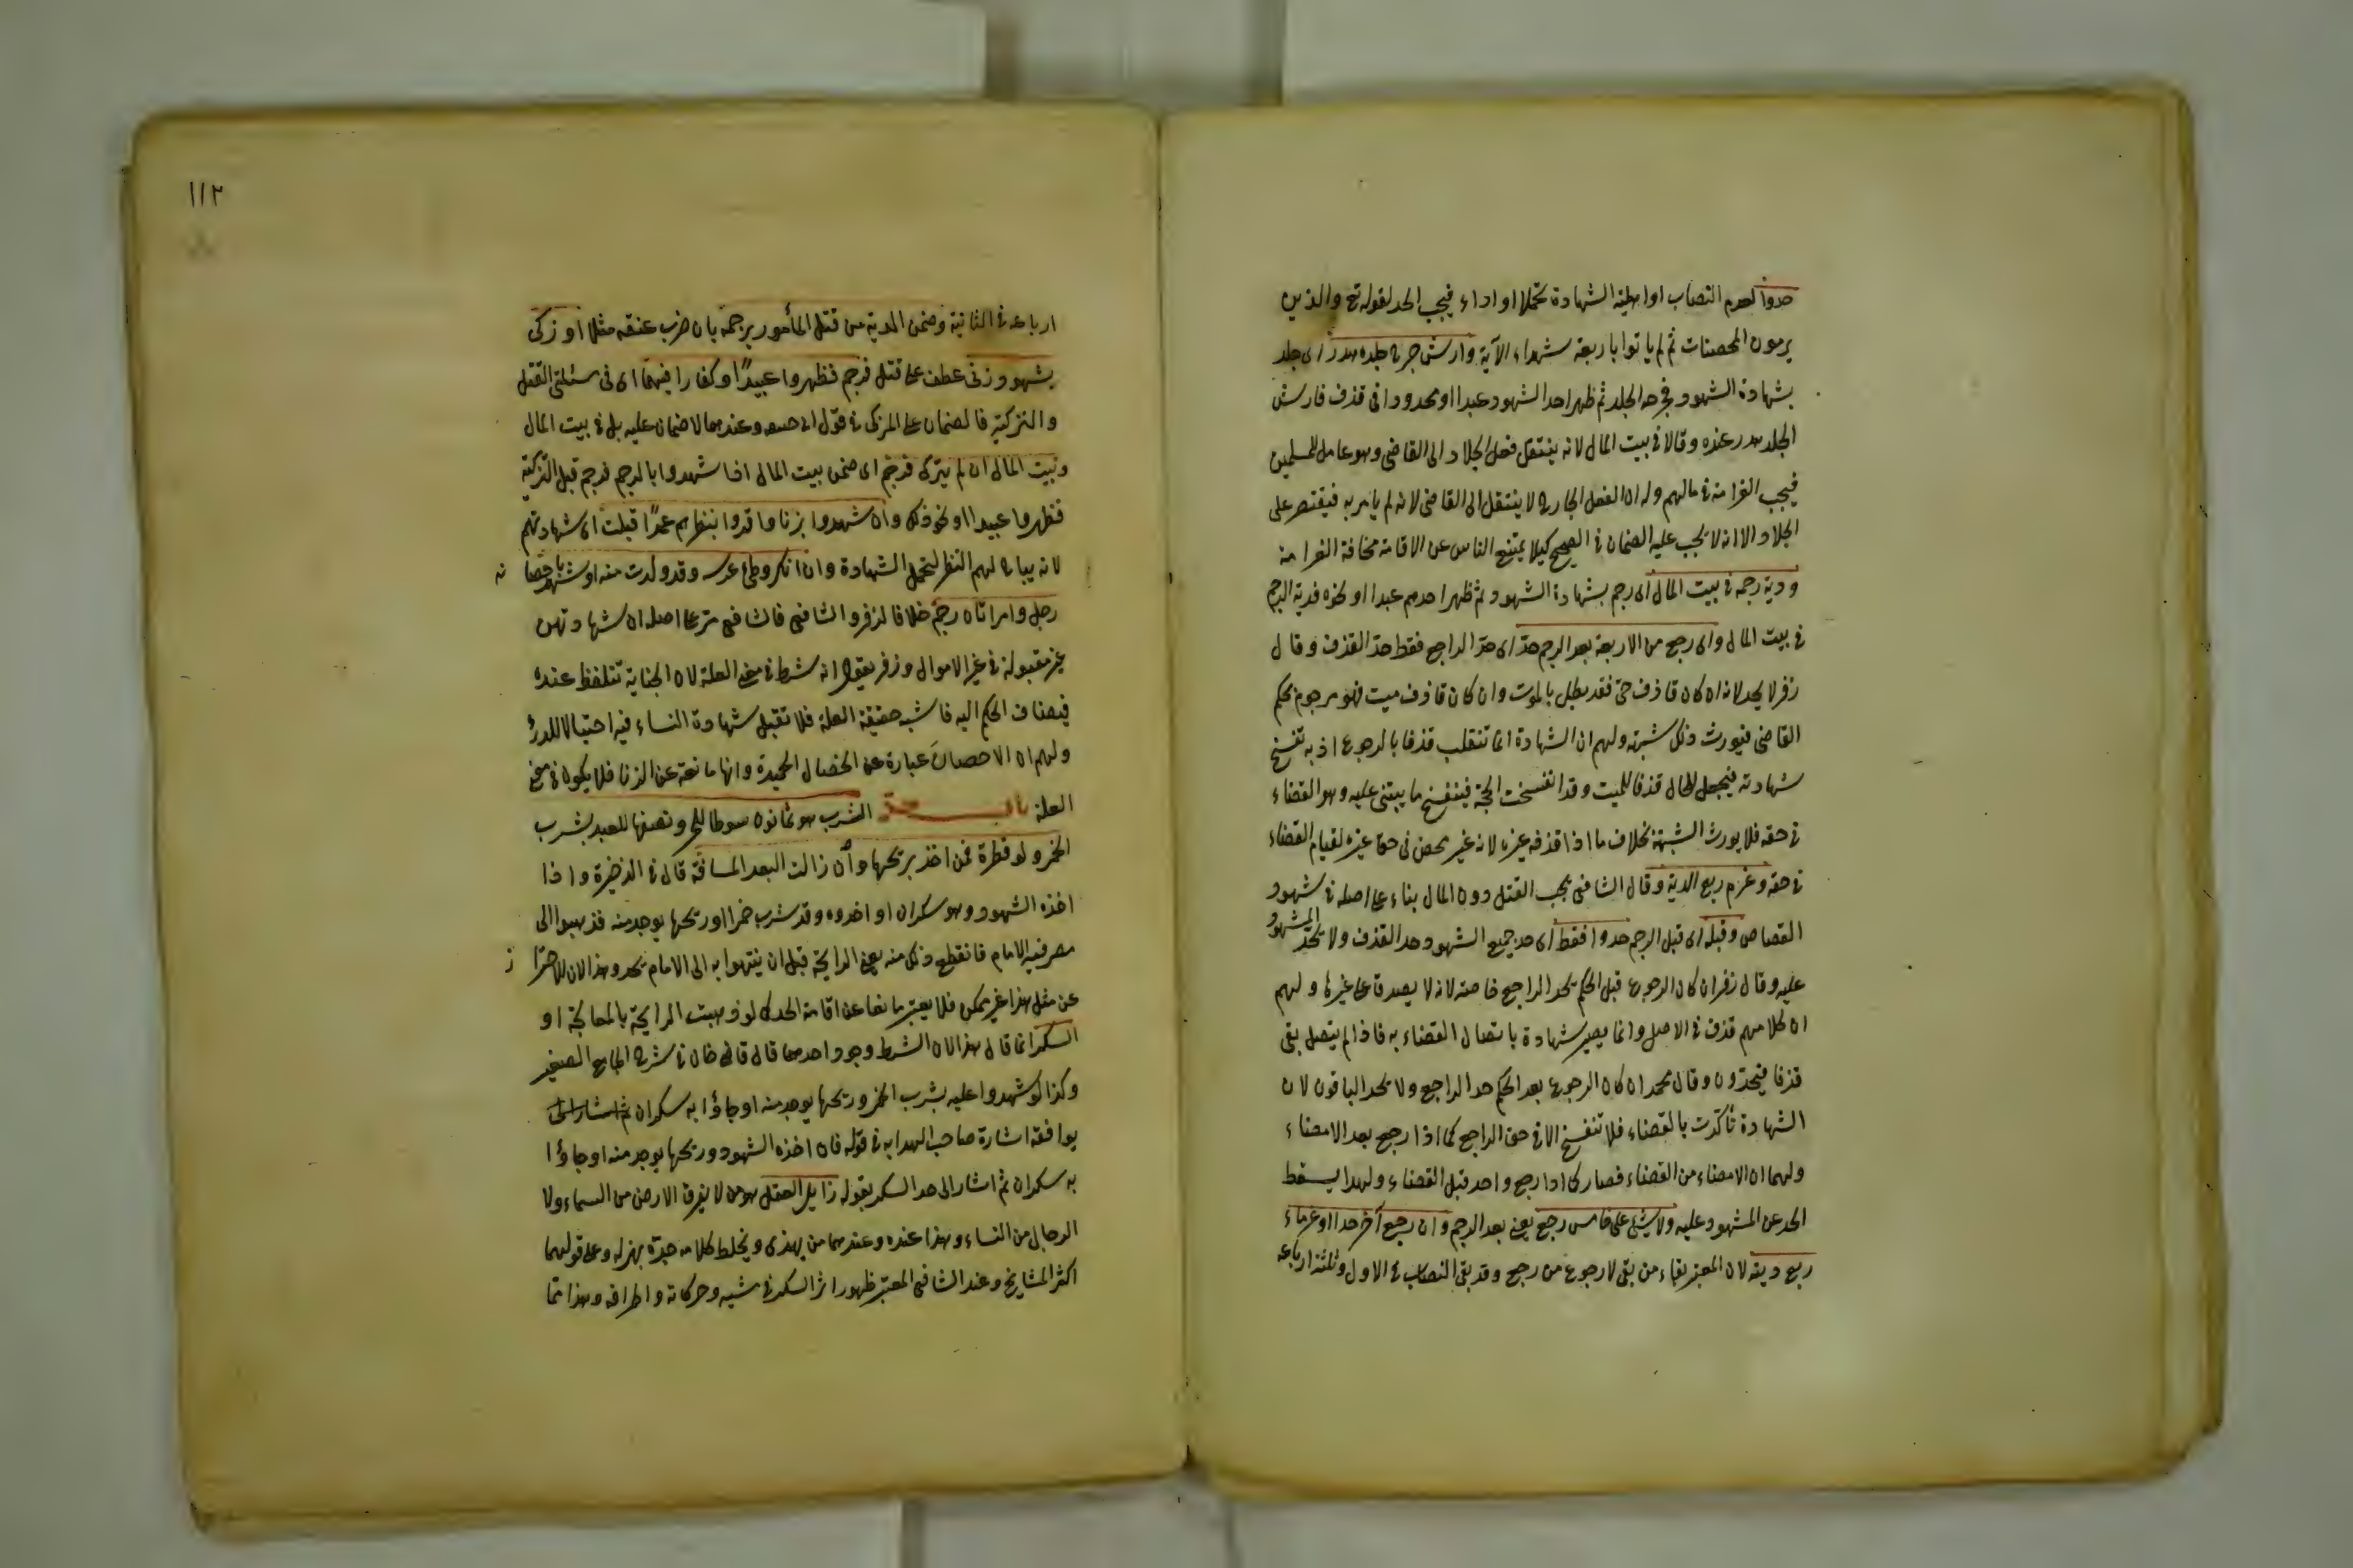 حدوا لعدم النصاب او اهلية الشهادة تحملا او اداء فيجب الحد لقوله تع والذين
يرمون المحصنات ثم لم ياتوا باربعة شهداء الآية وارش جرح جلده هدر اى جلد
بشهادة الشهود فجرحه الجلد ثم ظهر احد الشهود عبدا او محدودا فى قذف فارش
الجلد هدر عنده وقالا فى بيت المال لانه ينتقل فعل الجلاد الى القاضى وهو عامل للمسلمين
فيجب الغرامة فى مالهم وله ان الفعل الجارح لا ينتقل الى القاضى لانه لم يامر به فيقتصر على
الجلاد الا انه لا يجب عليه الضمان فى الصحيح كيلا يمتنع الناس عن الاقامة مخافة الغرامة
ودية رجمه فى بيت المال اى رجم بشهادة الشهود ثم ظهر احدهم عبدا او نحوه فدية الرجم
فى بيت المال واى رجع من الاربعة بعد الرجم حدّ اى حدّ الراجع فقط حدّ القذف وقال
زفر لا يحد لانه ان كان قاذف حىّ فقد بطل بالموت وان كان قاذف ميت فهو مرجوم بحكم
القاضى فيورث ذلك شبهة ولهم ان الشهادة انما تنقلب قذفا بالرجوع اذ به تفسخ
شهادته فيجعل للحال قذفا للميت وقد انفسخت الحجة فينفسخ ما يبتنى عليه وهو القضاء
فى حقه فلا يورث الشبهة بخلاف ما اذا قذفه غيره لانه غير محصن فى حق غيره لقيام القضاء
فى حقه وغرم ربع الدية وقال الشافى يجب القتل دون المال بناء على اصله فى شهود
القصاص وقبله اى قبل الرجم حدوا فقط اى حد جميع الشهود حد القذف ولا يحدّ المشهود
عليه وقال زفر ان كان الرجوع قبل الحكم يحد الراجع خاصة لانه لا يصدق على غيره ولهم
ان كلامهم قذف فى الاصل وانما يصير شهادة باتصال القضاء به فاذا لم يتصل بقى
قذفا فيحدّون وقال محمد ان كان الرجوع بعد الحكم حد الراجع ولا يحد الباقون لان
الشهادة تأكّدت بالقضاء فلا تنفسخ الا فى حق الراجع كما اذا رجع بعد الامضاء
ولهما ان الامضاء من القضاء فصار كما اذا رجع واحد قبل القضاء ولهذا يسقط
الحد عن المشهود عليه ولا شئ على خامس رجع يعنى بعد الرجم وان رجع آخر حدا وغرماء
ربع ديته لان المعتبر بقاء من بقى لا رجوع من رجع وقد بقى النصاب فى الاول وثلثة ارباعه
١١٢
ارباعه فى الثانية وضمن الدية من قتل المأمور برجمه بان ضرب عنقه مثلا او زكى
شهود زنى عطف على قتل فرجم فظهروا عبيدًا او كفارا فيهما اى فى مسئلتى القتل
والتزكية فالضمان على المزكى فى قول ابى حنيفه وعندهما لا ضمان عليه بل فى بيت المال
وبيت المال ان لم يزكّ فرجم اى ضمن بيت المال اذا شهدوا بالرجم فرجم قبل التزكية
فظهروا عبيدا او نحو ذلك وان شهدوا بزنا واقروا بنظرهم عمدًا قبلت اى شهادتهم
لانه يباح لهم النظر لتحمل الشهادة وان انكر وطئ عرسه وقد ولدت منه او شهد باحصانه
رجل وامراتان رجم خلافا لزفر والشافى فالشافى مرّ على اصله ان شهادتهن
غير مقبولة فى غير الاموال وزفر يقول انه شرط فى معنى العلة لان الجناية تتغلظ عنده
فيضاف الحكم اليه فاشبه حقيقة العلة فلا تقبل شهادة النساء فيه احتيالا للدرء
ولهم ان الاحصان عبارة عن الخصال الحميدة وانها مانعة عن الزنا فلا يكون فى معنى
العلة باب حدّ الشرب هو ثمانون سوطا للحر ونصفها للعبد بشرب
الخمر ولو قطرة فمن اخذ بريحها وان زالت لبعد المسافة قال فى الذخيرة واذا
اخذه الشهود وهو سكران او اخذوه وقد شرب خمرا وريحها يوجد منه فذهبوا الى
مصر فيه الامام فانقطع ذلك منه يعنى الرايحة قبل ان ينتهوا به الى الامام يحد وهذا لان الاحتراز
عن مثل هذا غير ممكن فلا يعتبر مانعا عن اقامة الحد كما لو ذهبت الرايحة بالمعالجة او
السكر انما قال هذا لان الشرط وجود احدهما قال قاضى خان فى شرح الجامع الصغير
وكذا لو شهدوا عليه بشرب الخمر وريحها يوجد منه او جاؤا به سكران ثم اشار الى
يوافقه اشارة صاحب الهدايه فى قوله فان اخذه الشهود وريحها يوجد منه او جاؤا
به سكران ثم اشار الى حد السكر بقوله زايل العقل هو من لا يفرق الارض من السماء ولا
الرجال من النساء وهذا عنده وعندهما من يهذى ويخلط كلامه جدّه بهزله وعلى قولهما
اكثر المشايخ وعند الشافى المعتبر ظهور اثر السكر فى مشيه وحركاته واطرافه وهذا مما